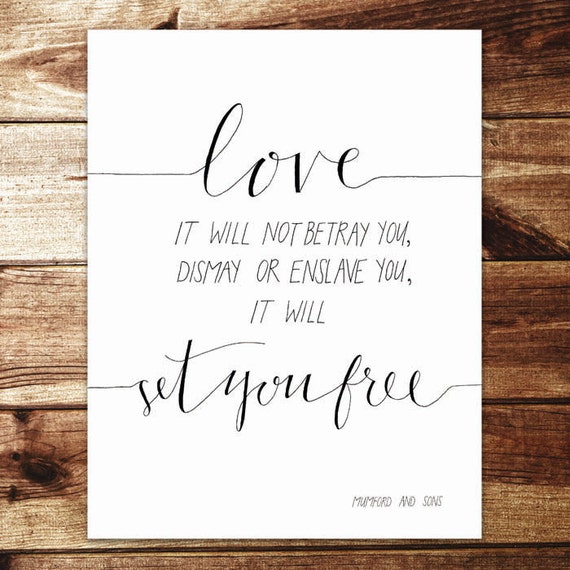 love
IT WILL NOT BETRAY YOU,
DISMAY OR ENSLAVE YOU,
IT WILL
set you free
MUMFORD AND SONS